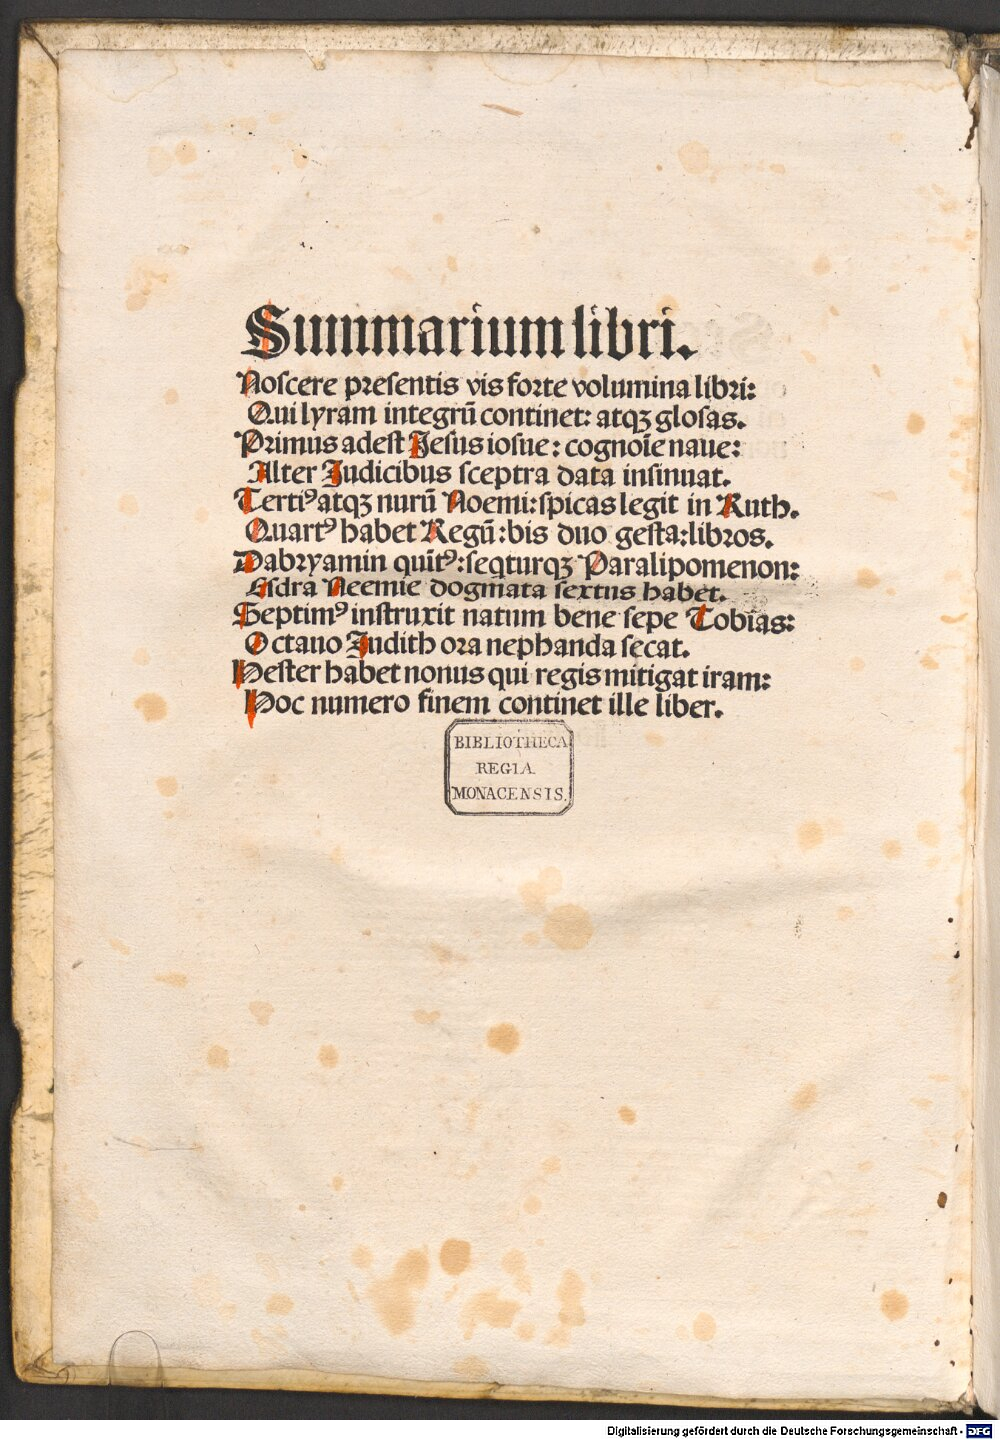 Summarium libri.
Noscere presentis vis forte volumina libri:
Qui lyram integrū continet: atqꝫ glosas.
Primus adest Jesus iosue: cognoīe naue:
Alter Judicibus sceptra data insinuat.
Tertiꝰ atqꝫ nurū Noemi: spicas legit in Ruth.
Quartꝰ habet Regū: bis duo gesta: libros.
Dabryamin quītꝰ: seqturqꝫ Paralipomenon:
Esdra Neemie dogmata sextus habet.
Septimꝰ instruxit natum bene sepe Tobias:
Octauo Judith ora nephanda secat.
Hester habet nonus qui regis mitigat iram:
Hoc numero finem continet ille liber.
BIBLIOTHECA
REGIA
MONACENSIS.
Digitalisierung gefördert durch die Deutsche Forschungsgemeinschaft - DFG